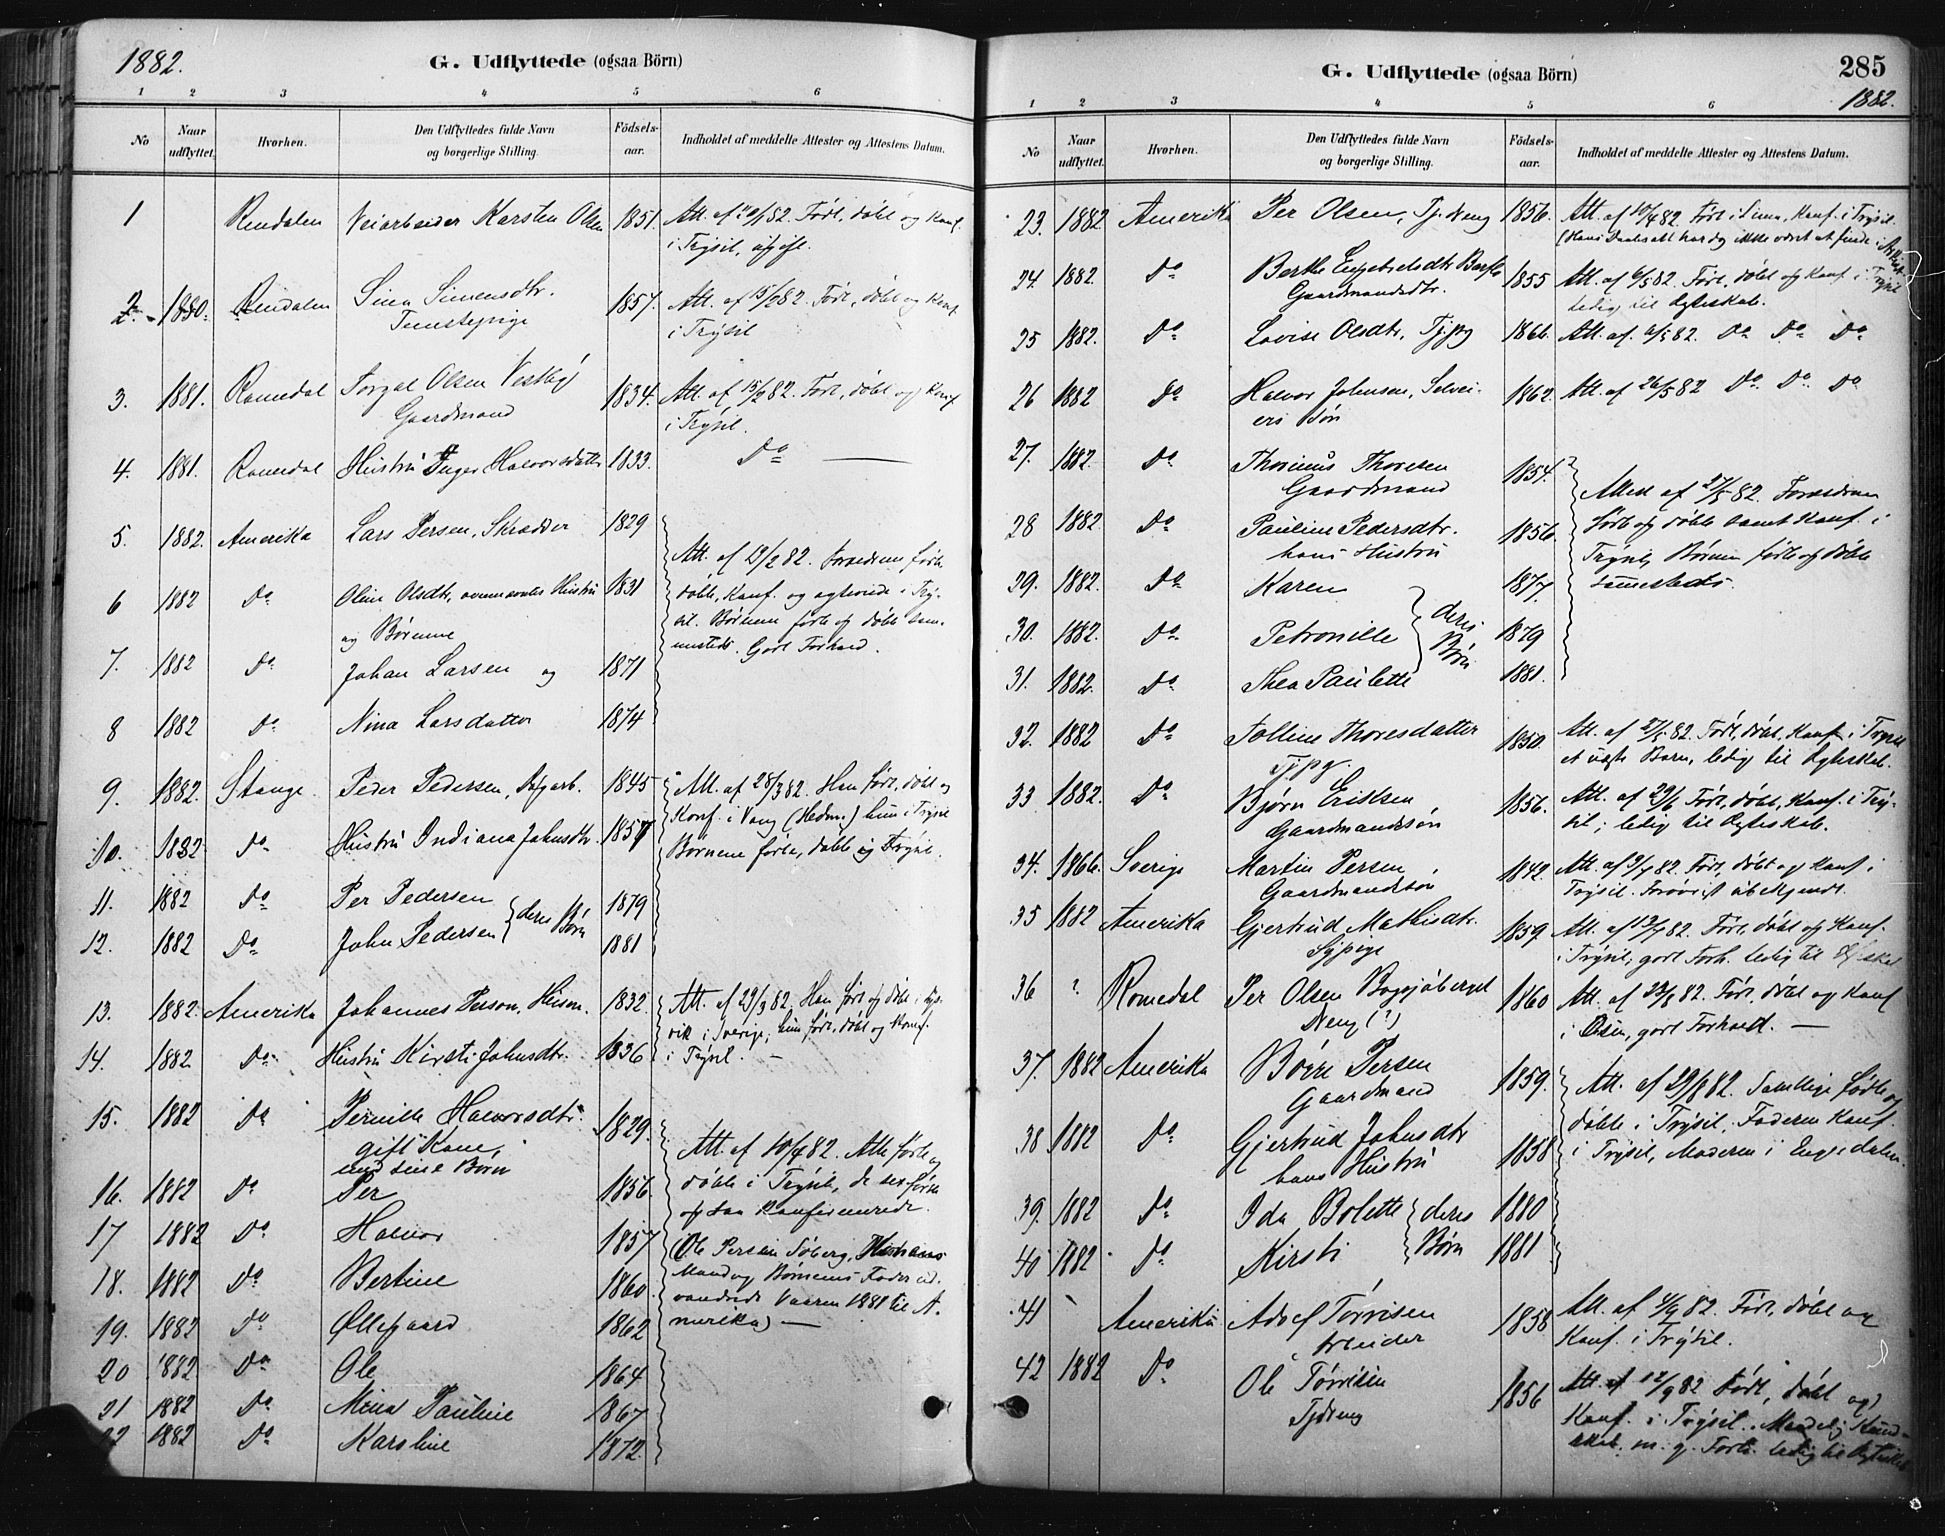 1882.
G. Udflyttede (ogsaa Börn)
1 2 3 4 5 6
No
Naar udflyttet.
Hvorhen.
Den Udflyttedes fulde Navn og borgerlige Stilling.
Födsels-aar.
Indholdet af meddelte Attester og Attestens Datum.
1 Rendalen Veiarbeider Karsten Olsen 1851. Att. af 82. Født, døbt og Konf.
i Trysil, ugift.
2. 1880. Rendalen Sina Simensdtr. 1857. Att. af 15/ 82. Født, døbt og Konf.
Tjenestepige i Trysil
3. 1881. Romedal Torgal Olsen Vestby 1834. Att. af 15/2 82. Født, døbt og Konf.
Gaardmand i Trysil.
4. 1881. Romedal Hustru Inger Halvorsdatter 1833. Do
5. 1882. Amerika Lars Persen, Skrædder 1829
Att. af 82. Forældrene født
6 1882 Do Oline Olsdtr, ovennævntes Hustru 1831 døbte, Konf. og i Try-
og Børnene sil. Børnene født og døbt sam-
7. 1882 Do Johan Larsen og 1871 mesteds. Godt Forhold.
8 1882 Do Nina Larsdatter 1874
9. 1882. Stange Peder Pedersen, 1845 Att. af 28/3 82. Han født, døbt og
Konf. i Vang (Hedm.) hun i Trysil
10. 1882 Do Hustru Indiana Johnsdtr. 1857 Børnene født, døbt i Trysil.
11. 1882 Do Per Pedersen deres Børn 1879
12. 1882 Do John Pedersen 1881
13. 1882. Amerika Johannes Person, Huusm. 1832. Att. af 29/3 82. Han født og døbt i
i Sverige, hun født, døbt og Konf.
14. 1882 Do Hustru Kirsti Johnsdtr. 1836 i Trysil.
15. 1882 Do Pernille Halvorsdtr. 1829.
gift Kone, Att. af 10/4 82. Alle født og
med sine Børn døbte i Trysil, de sex første
16. 1882 Do Per 1856. ogsaa Konfirmerede.
17 1882 Do Halvor 1857 (Ole Persen Søberg, Hendes
18. 1882 Do Bertine 1860. Mand og Børnenes Fader ud-
vandrede Vaaren 1881 til A-
19. 1882 Do Øllegaard 1862 merika)
20 1882. Do Ole 1864
21 1882 Do Mina Pauline 1867
22 1882 Do Karoline 1872.
G. Udflyttede (ogsaa Börn)
285
1882.
1 2 3 4 5 6
No
Naar udflyttet.
Hvorhen.
Den Udflyttedes fulde Navn og borgerlige Stilling.
Födsels-aar.
Indholdet af meddelte Attester og Attestens Datum.
23. 1882 Amerika Per Olsen, Tjdreng 1856. Att. af 10/4 82. Født i , Konf. i Trysil
(Hans Daabsatt. har jeg ikke været at finde i
24. 1882. Do Berthe Engebretsdtr 1855 Att. af 6/5 82. Født, døbt og Konf. i Trysil
Gaardmandsdtr. ledig til Ægteskab.
25 1882. Do Lovise Olsdtr, Tjpg 1866. Att. af 82. Do Do Do
26 1882 Do Halvor Johnsen, Selvei- 1862. Att. af 26/5 82 Do Do Do
ers Søn
27. 1882. Do Thorinus Thoresen 1854.
Gaardmand Attest af 27/5 82. Forældrene
28 1882 Do Pauline Pedersdtr. 1856. født og døbt samt Konf. i
hans Hustru Trysil, Børnene født og døbte
29. 1882. Do Karen 1877. sammesteds.
30. 1882. Do Petronille deres Børn 1879
31. 1882. Do Thea Paulette 1881.
32. 1882 Do Olline Thoresdatter 1850. Att. af 27/5 82. Født, døbt, Konf. i Trysil
Tjpg. et uægte Barn, ledig til Ægteskab.
33 1882. Do Bjørn Eriksen 1856. Att. af 29/6 Født, døbt, Konf. i Try-
Gaardmandssøn sil; ledig til Ægteskab.
34. 1866. Sverige Martin Persen 1842. Att. af 3/7 82. Født, døbt og Konf. i
Gaardmandssøn Trysil. Forøvrigt ubekjendt.
35 1882 Amerika Gjertrud Mathisdtr. 1859. Att. af 13/7 82. Født, døbt og Konf.
Sypige i Trysil, godt Forh. ledig til
36 ? Romedal Per Olsen 1860 Att. af 82. Født, døbt og Konf
Dreng (?) i Osen, godt Forhold.
37. 1882 Amerika Børre Persen 1859. Att. af 29/8 82. Samtlige fødte og
Gaardmand døbte i Trysil, Faderen Konf.
38 1882 Do Gjertrud Johnsdtr 1858 i Trysil, Moderen i Engerdalen.
hans Hustru
39. 1882 Do Ida Bolette deres Børn 1880
40 1882 Do Kirsti 1881
41 Amerika Adolf Tørrisen 1858 Att. af 4/9 82. Født, døbt og
Arbeider Konf. i Trysil.
42 1882 Do Ole Tørrisen 1856 Att. af 12/9 82 Født, døbt og
Tjdreng Konf. i Trysil. Maadelig Kund-
skab, m. g. Forh. ledig til Ægteskab